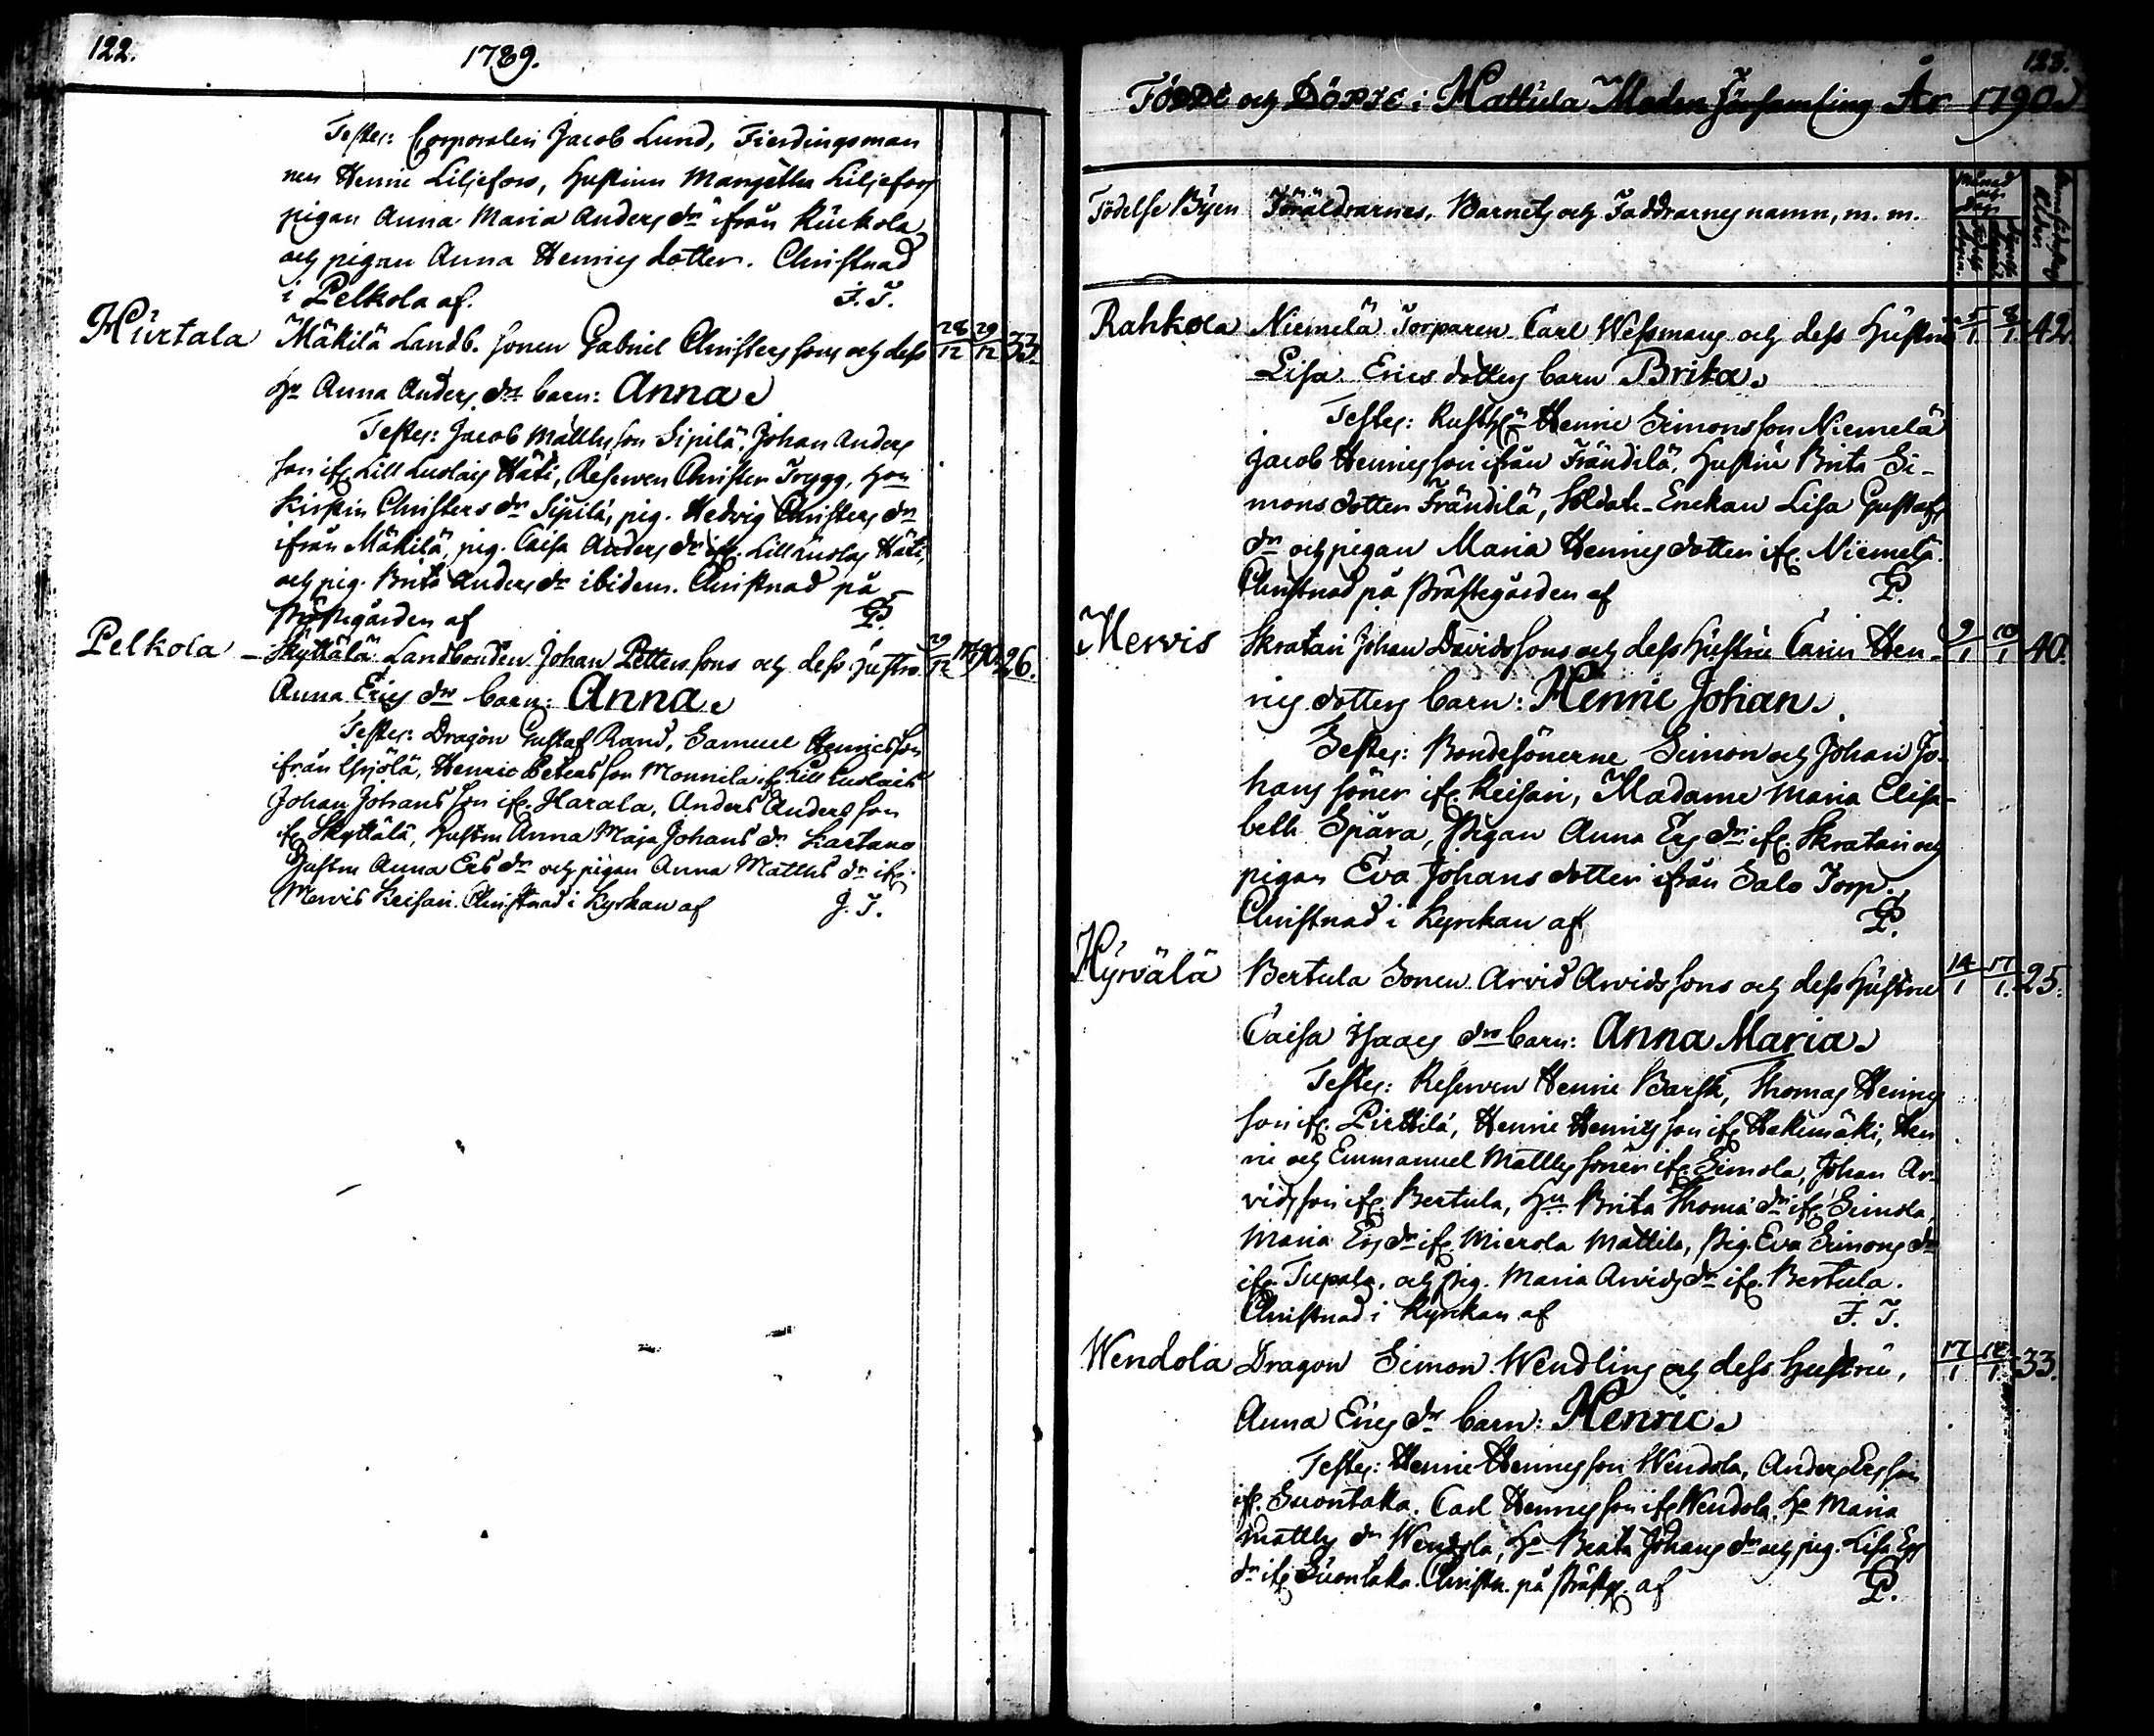 122.
1789.
Testes: Corporalen Jacob Lund, Fierdingsman
nen Henric Liljefors, hustrun Margetha Liljefors
pigan Anna Maria Anders dr ifrån Ruckola
och pigan Anna Henrics dotter. Christnad
i Pelkola af. F. T.
Hurtala Mäkilä Landb. sonen Gabriel Christers sons och dess 28/12 29/12 33.
hu Anna Anders drs barn: Anna.
Testes: Jacob Matths son Sipilä, Johan Anders
son ifr. Lill Luolais Häti, Reserven Christer Trygg, hun
Kirstin Christers dr Sipilä, pig. Hedvig Christers dr
ifrån Mäkilä, pig. Caisa Anders dr ifr. Lill Luolas Häti,
och pig. Brita Anders dr ibidem. Christnad på
Prästegården af P.
Pelkola Skyttälä Landbonden Johan Petters sons och dess hustru 29/12 26.
Anna Erics drs barn: Anna.
Testes: Dragon Gustaf Rand, Samuel Henrics son
ifrån, Henric Peters son Monnila ifr. Lill Luolais
Johan Johans son ifr. Harala, Anders Anders son
ifr. Skyttälä, hustru Anna Maja Johans dr Kartano
hustru Anna Ers dr och pigan Anna Matths dr ifr.
Mervis Keisari. Christnad i Kyrkan af J. T.
123.
Födde och Döpte i Hattula Moder Församling År 1790.
Födelse Byen Föräldrarnes, Barnets och Faddrarnes namn, m. m.
Månad och dag
Rahkola Niemelä Torparen Carl Wessmans och dess hustru 5/1 8/1 42.
Lisa Erics dotters barn Brita.
Testes: Rusth:n Henric Simons son Niemelä
Jacob Henrics son ifrån Frändilä, hustru Brita Si-
mons dotter Frändilä, Soldats-Enckan Lisa Gustafs
dr och pigan Maria Henrics dotter ifr. Niemelä.
Christnad på Prästegården af P.
Mervis Skratari Johan Davids sons och dess hustru Carin Hen- 9/1 10/1 40.
rics dotters barn: Henric Johan.
Testes: Bondesönerne Simon och Johan Jo-
hans söner ifr. Keisari, Madame Maria Elisa-
beth Spära, Pigan Anna Ers dr ifr. Skratari och
pigan Eva Johans dotter ifrån Salo Torp.
Christnad i Kyrckan af P.
Hyrvälä Bertula Sonen Arvid Arvids sons och dess hustru 14/1 17/1 25.
Caisa Isaacs drs barn: Anna Maria.
Testes: Reserven Henric Barsk, Thomas Henrics
son ifr. Pirttilä, Henric Henrics son ifr. Hakumäki, Hen
ric och Emmanuel Matths söner ifr. Simola, Johan Ar-
vids son ifr. Bertula, hu Brita Thoma dr ifr. Simola,
Maria Ers dr ifr. Mierola Mattila, Pig. Eva Simons dr
ifr. Tupala, och pig. Maria Arvids dr ifr. Bertula.
Christnad i Kyrckan af F. T.
Wendola Dragon Simon Wendling och dess hustru, 17/1 18/1 33.
Anna Erics drs barn: Henric.
Testes: Henric Henrics son Wendola, Anders Ers son
ifr. Suontaka. Carl Henrics son ifr. Wendola. Hu Maria
Matths dr Wendola, Hu Beata Johans dr och pig. Lisa Ers
dr ifr. Suontaka. Christn. på Prästeg. af P.